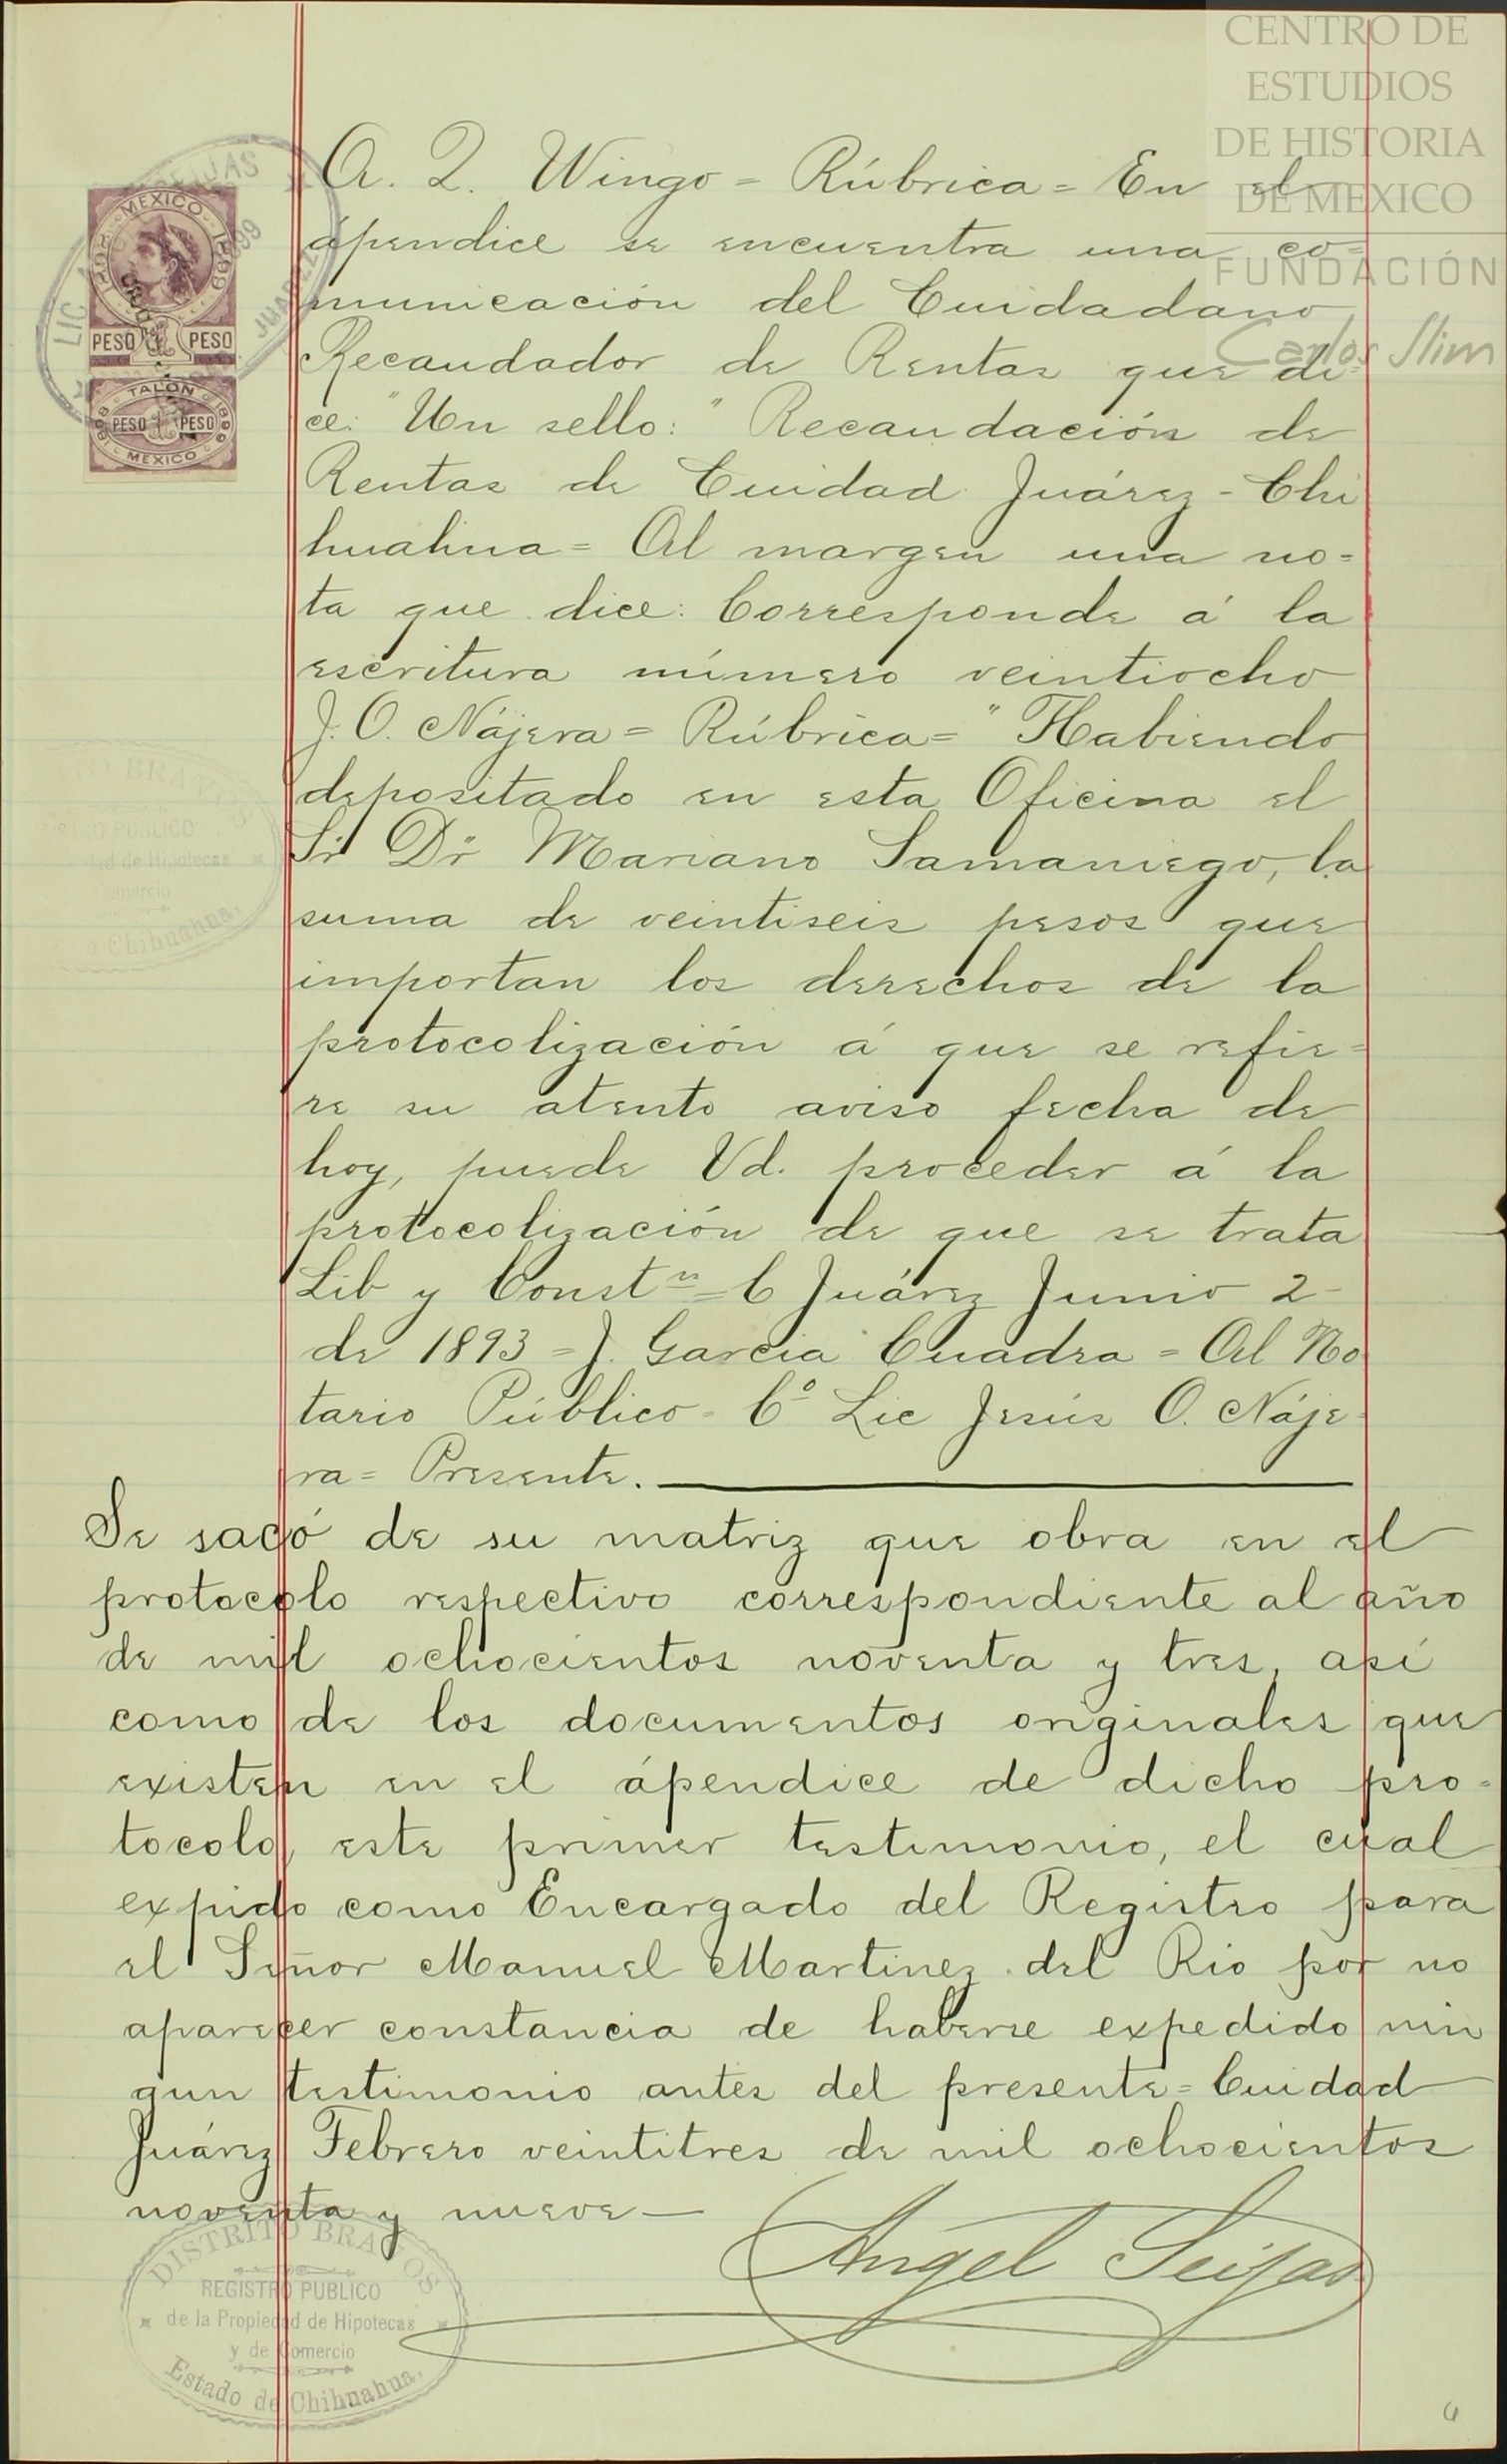 CENTRO DE
ESTUDIOS
DE HISTORIA
DE MEXICO
FUNDACIÓN
Carlos Slim
MEXICO
1898 1899
PESO PESO
TALON
1898 1899
PESO PESO
MEXICO
A. Q. Wingo = Rúbrica = En el
ápendice se encuentra una co=
municación del Cuidadano
Recaudador de Rentas que di
ce: "Un sello: "Recaudación de
Rentas de Cuidad Juárez - Chi
huahua = Al margen una no=
ta que dice: Corresponde á la
escritura número veintiocho
J. O. Nájera = Rúbrica = "Habiendo
depositado en esta Oficina el
Sr Dr Mariano Samaniego, la
suma de veintiseis pesos que
importan los derechos de la
protocolización á que se refie=
re su atento aviso fecha de
hoy, puede Vd. proceder á la
protocolización de que se trata
Lib y Constn = C Juárez Junio 2
de 1893 = J. Garcia Cuadra = Al No
tario Público - Co Lic Jesús O. Náje
ra = Presente.
Se sacó de su matriz que obra en el
protocolo respectivo correspondiente al año
de mil ochocientos noventa y tres, asi
como de los documentos originales que
existen en el ápendice de dicho pro=
tocolo, este primer testimonio, el cual
expido como Encargado del Registro para
el Señor Manuel Martinez del Rio por no
aparecer constancia de haberse expedido nin
gun testimonio antes del presente = Cuidad
Juárez Febrero veintitres de mil ochocientos
noventa y nueve
Angel Seijas
DISTRITO BRAVOS
REGISTRO PUBLICO
de la Propiedad de Hipotecas
y de Comercio
Estado de Chihuahua.